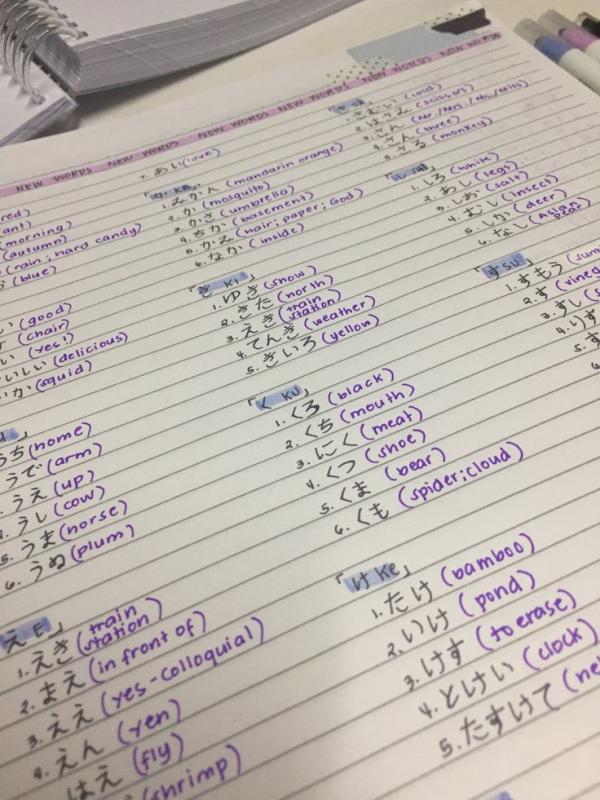 NEW WORDS NEW WORDS NEW WORDS NEW WORDS NEW WORDS NEW WORDS
7. あい (love)
red)
ant)
(morning)
(autumn)
(rain; hard candy)
(blue)
い (good)
(chair)
い (yes!)
いしい (delicious)
いか (squid)
うち (home)
うで (arm)
うえ (up)
うし (cow)
5. うま (horse)
6. うめ (plum)
え E」
1. えき (train station)
2. まえ (in front of)
3. ええ (yes-colloquial)
4. えん (yen)
はえ (fly)
(shrimp)
「か Ka」
1. みかん (mandarin orange)
2. か (mosquito)
3. かさ (umbrella)
4. ちか (basement)
5. かみ (hair; paper; God)
6. なか (inside)
「き KI」
1. ゆき (snow)
2. きた (north)
3. えき (train station)
4. てんき (weather)
5. きいろ (yellow)
「く KU」
1. くろ (black)
2. くち (mouth)
3. にく (meat)
4. くつ (shoe)
5. くま (bear)
6. くも (spider; cloud)
「け Ke」
1. たけ (bamboo)
2. いけ (pond)
3. けす (to erase)
4. とけい (clock)
5. たすけて (he
1. さむい (cold)
2. はさみ (scissors)
3. さん (Mr/Mrs./Ms/Miss)
4. さん (three)
5. さる (monkey)
1. しろ (white)
2. あし (leg)
3. しお (salt)
4. むし (insect)
5. しか (deer)
6. なし (Asian pear)
「す SU」
1. すもう (sum
2. す (vineg
3. すし (s
4. りす
5. す
6.